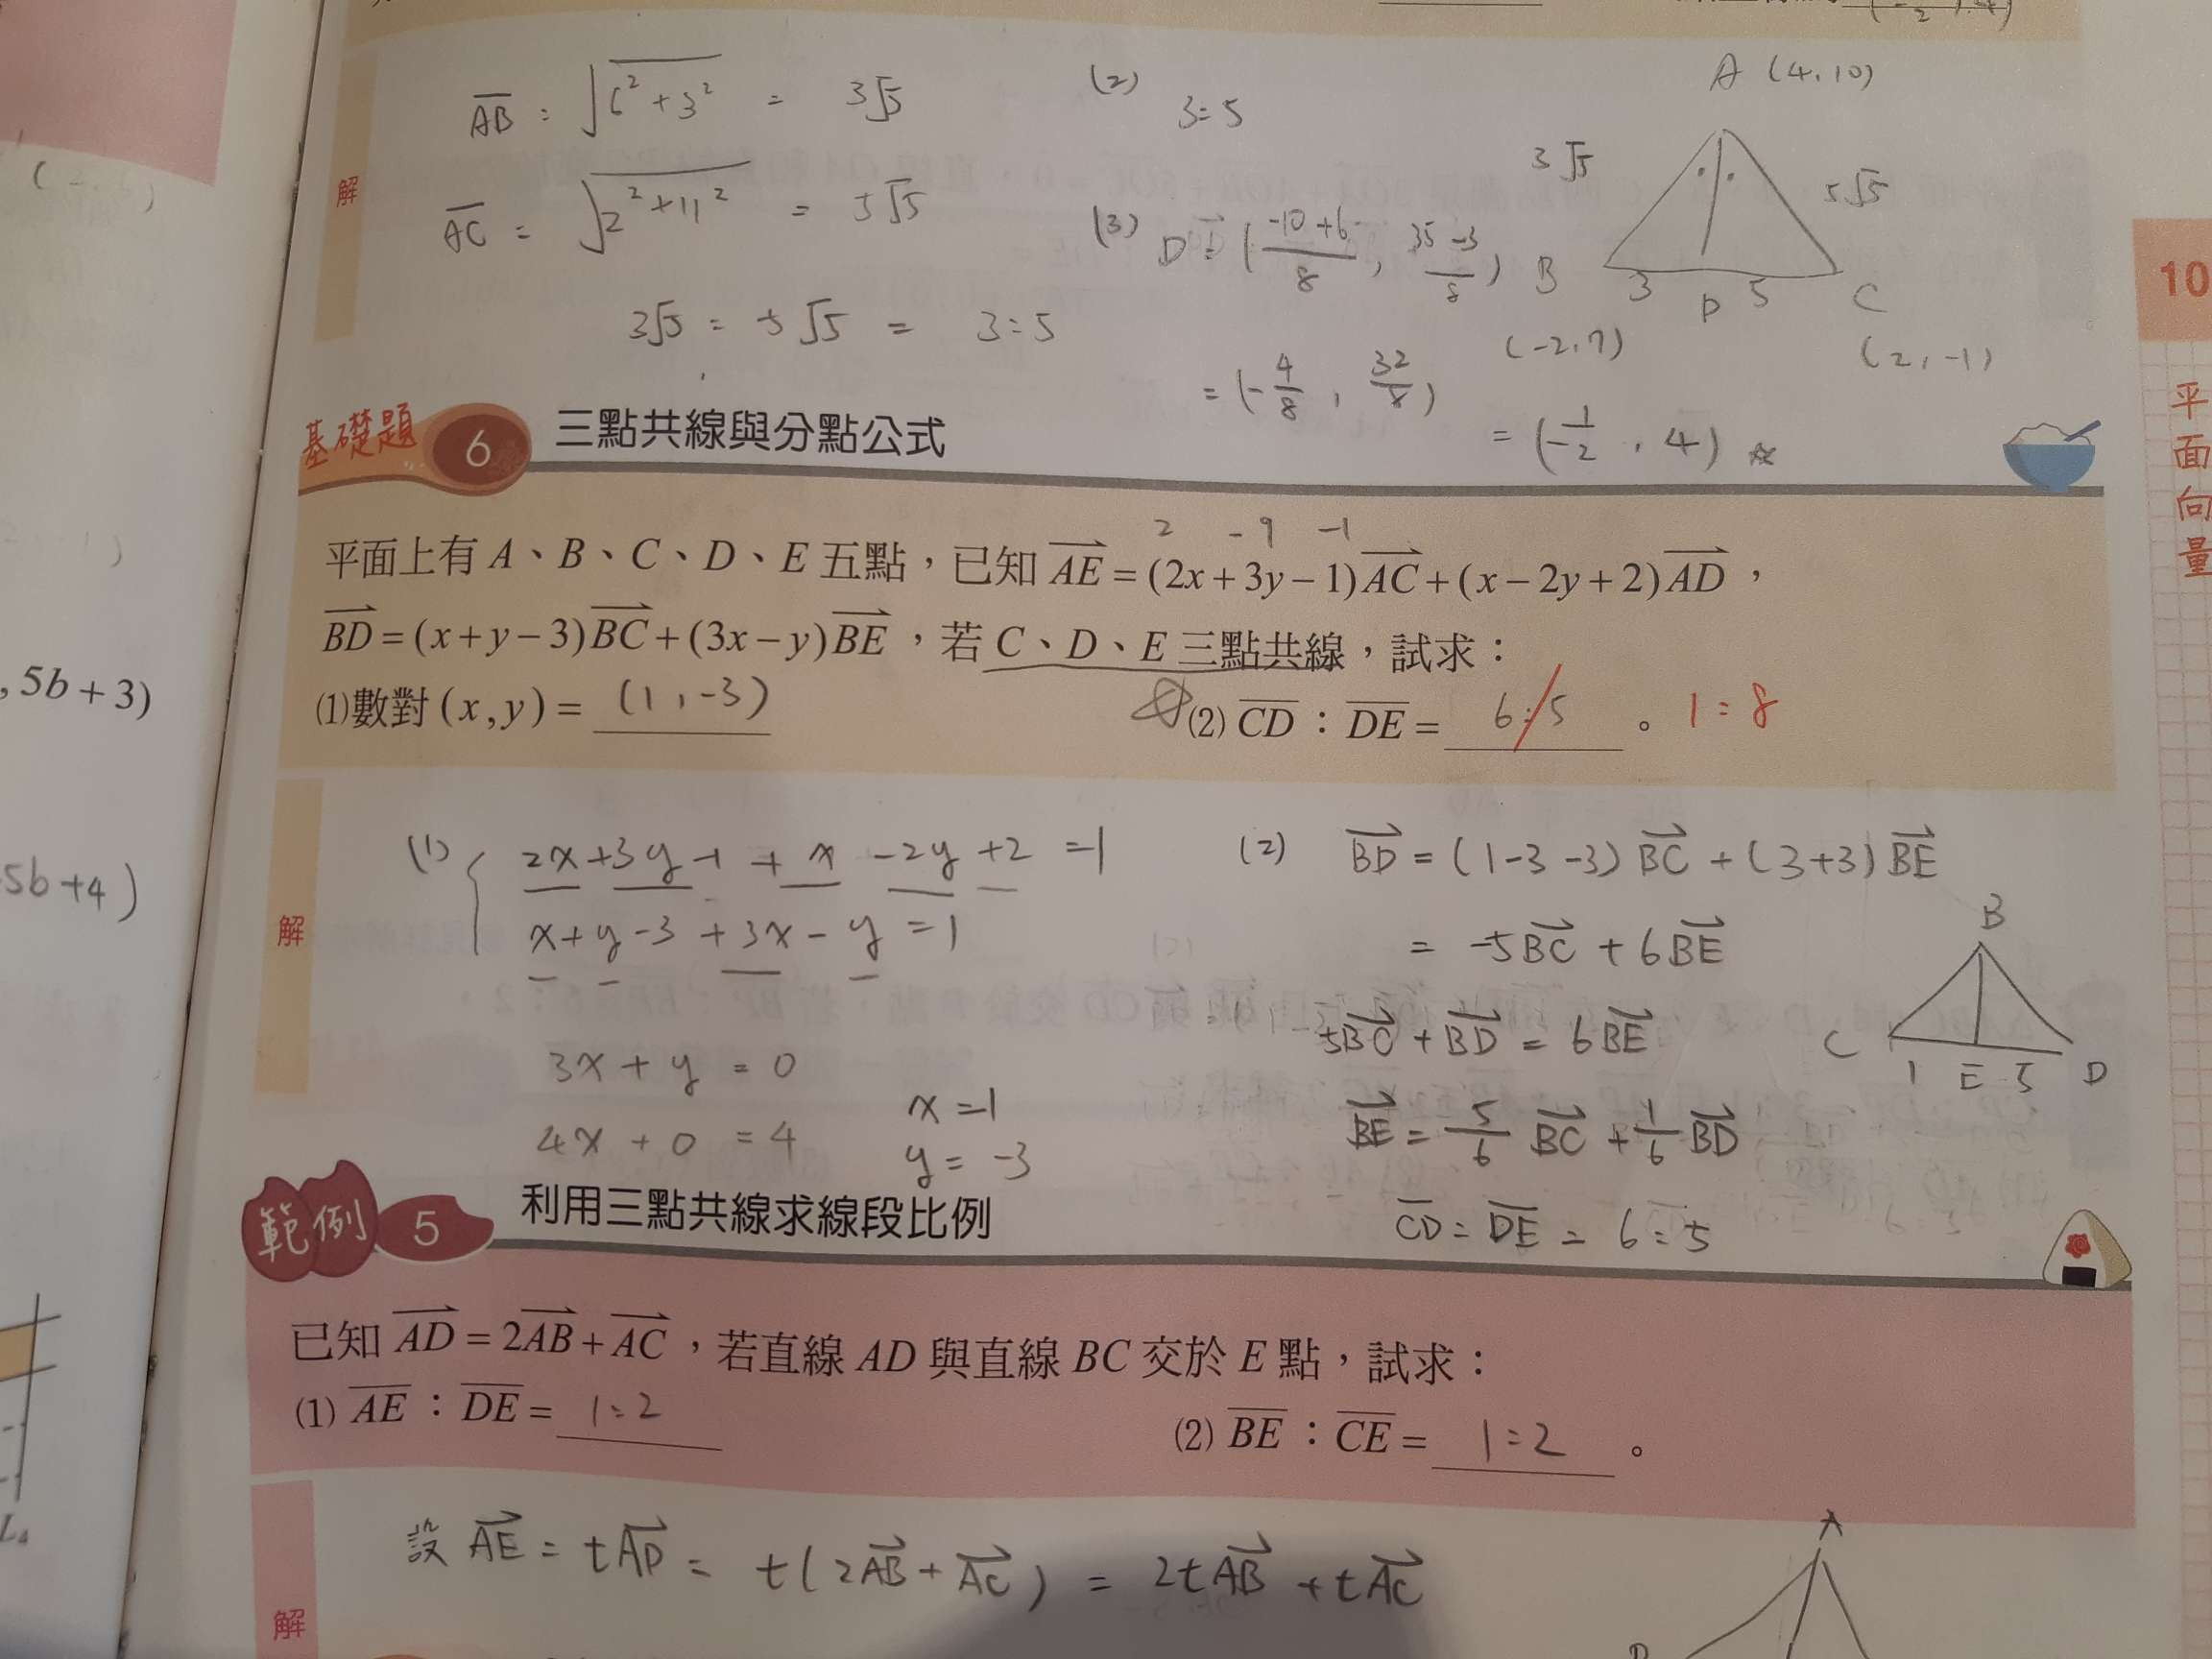 AB : √(6²+3²) = 3√5
AC = √(2²+11²) = 5√5
3√5 : 5√5 = 3:5
(2) 3:5
(3) D : (-10+6/8, 35-3/8)
= (-4/8, 32/8)
= (-1/2, 4)
A (4,10)
3√5
5√5
B 3 D 5 C
(-2,7)
(2,-1)
解
10
平面向量
, 5b+3)
5b+4)
L₄
基礎題 6 三點共線與分點公式
2 -9 -1
平面上有 A、B、C、D、E 五點，已知 AE=(2x+3y−1)AC+(x−2y+2)AD，
BD=(x+y−3)BC+(3x−y)BE，若 C、D、E 三點共線，試求：
⑴數對(x,y)= (1,-3) ⑵ CD：DE= 6:5 。 1:8
解
(1) { 2x+3y-1+x-2y+2 =1
x+y-3+3x-y=1
3x+y=0
4x+0=4
x=1
y=-3
(2) BD=(1-3-3)BC+(3+3)BE
= -5BC+6BE
5BC+BD=6BE
BE=5/6 BC+1/6 BD
CD:DE=6:5
B
C 1 E 5 D
範例 5 利用三點共線求線段比例
已知 AD=2AB+AC，若直線 AD 與直線 BC 交於 E 點，試求：
⑴ AE：DE= 1:2 ⑵ BE：CE= 1:2 。
解
設 AE=tAD=t(2AB+AC)=2tAB+tAC
A